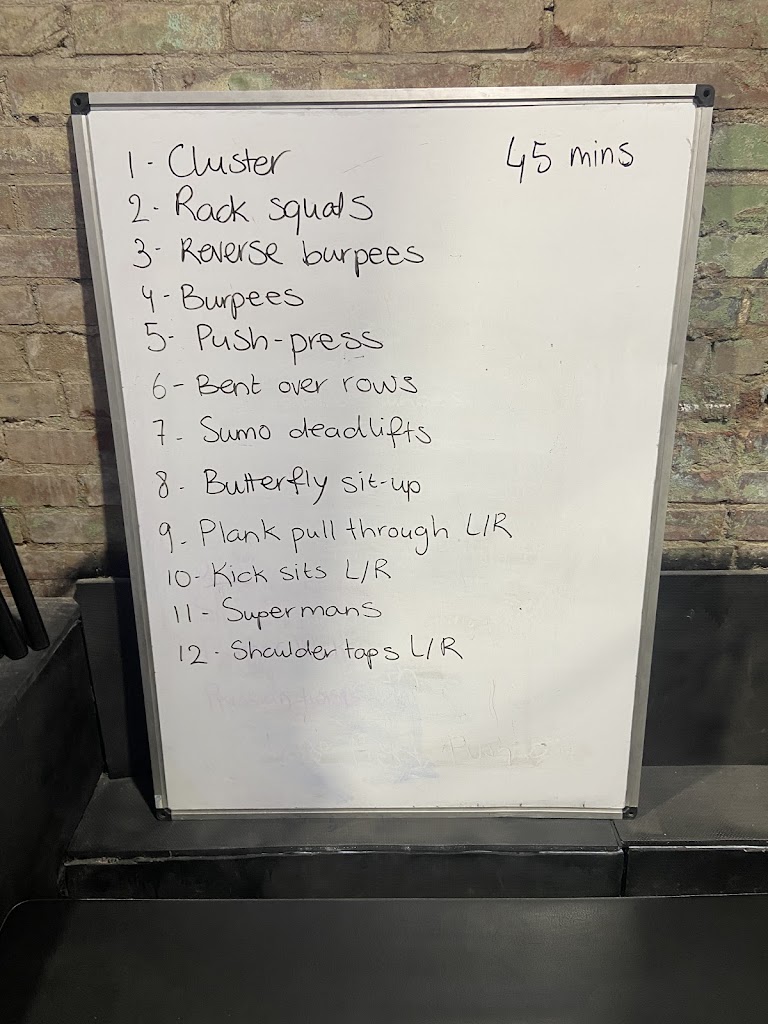 1- Cluster 45 mins
2- Rack squats
3- Reverse burpees
4- Burpees
5- Push-press
6- Bent over rows
7- Sumo deadlifts
8- Butterfly sit-up
9- Plank pull through L/R
10- Kick sits L/R
11- Supermans
12- Shoulder taps L/R